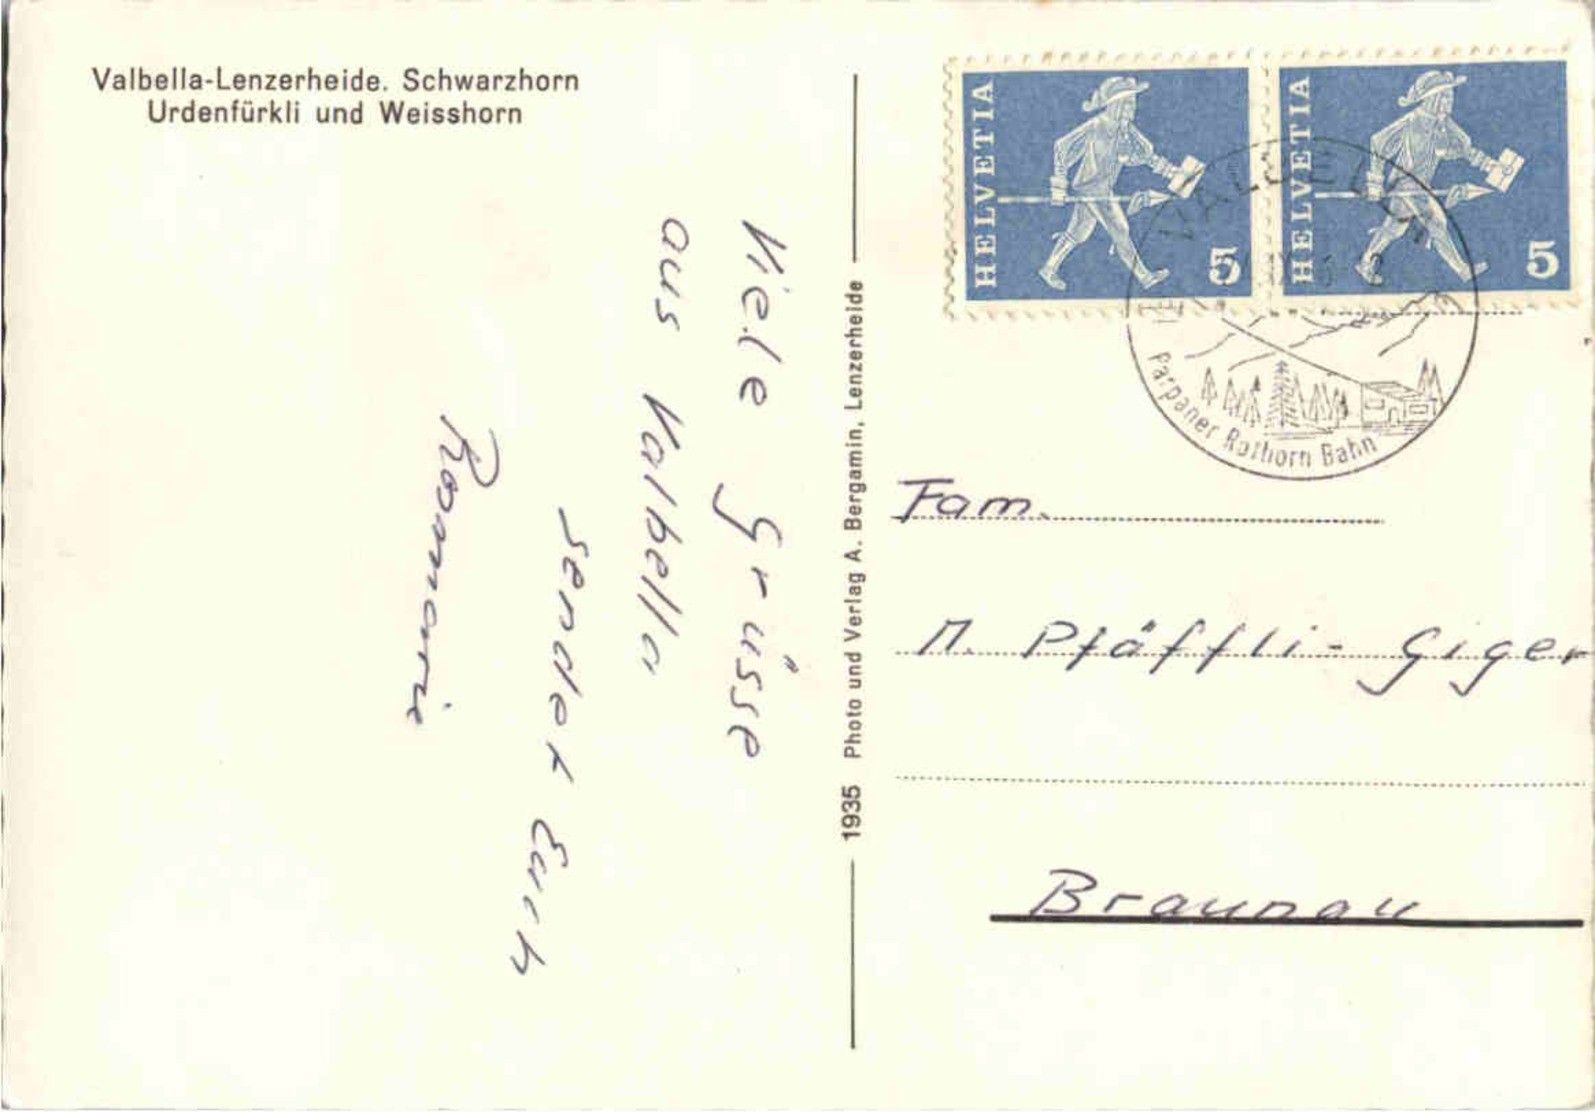 Valbella-Lenzerheide. Schwarzhorn
Urdenfürkli und Weisshorn
HELVETIA
5
HELVETIA
5
VALBELLA
Parpaner Rothorn Bahn
Viele Grüsse
aus Valbella
sendet Euch
Rosmarie
1935 Photo und Verlag A. Bergamin, Lenzerheide
Fam.
M. Pfäffli-Giger
Braunau